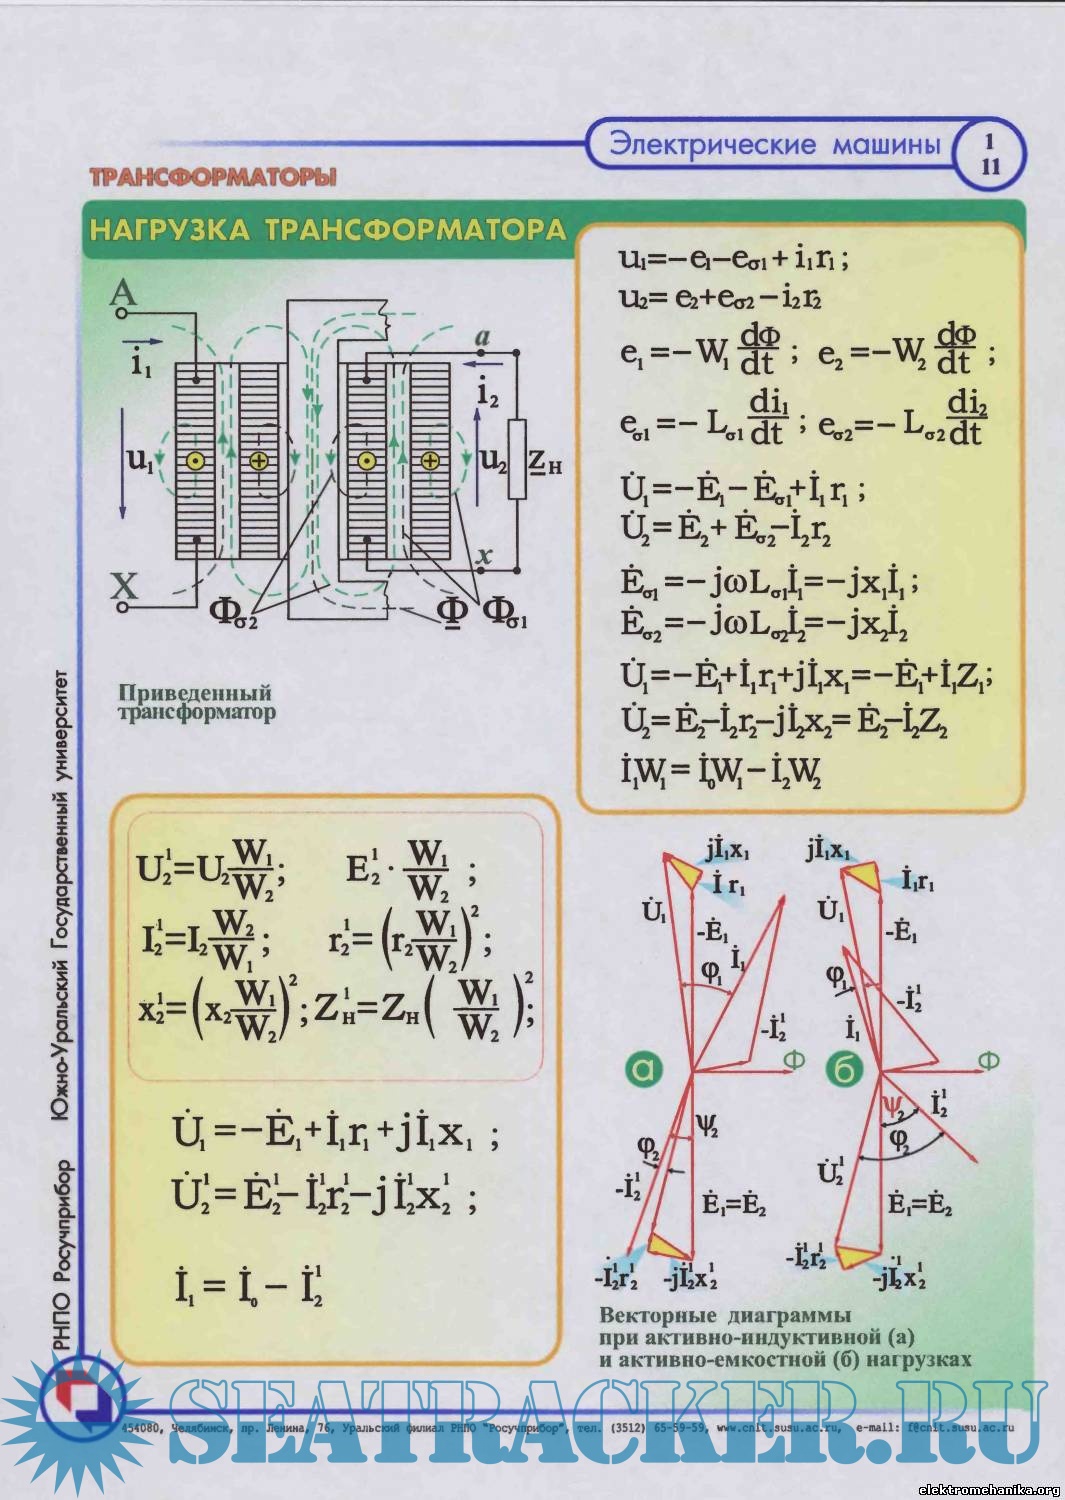 Электрические машины
1
11
ТРАНСФОРМАТОРЫ
НАГРУЗКА ТРАНСФОРМАТОРА
A
i₁
u₁
X
a
i₂
u₂ z̲н
x
Фσ2 Ф̲ Фσ1
Приведенный
трансформатор
u₁=−e₁−eσ1+i₁r₁;
u₂= e₂+eσ2−i₂r₂
e₁=−W₁ dФ/dt ; e₂=−W₂ dФ/dt ;
eσ1=− Lσ1 di₁/dt ; eσ2=− Lσ2 di₂/dt
U̇₁=−Ė₁−Ėσ1+İ₁r₁;
U̇₂=Ė₂+Ėσ2−İ₂r₂
Ėσ1=−jωLσ1İ₁=−jx₁İ₁;
Ėσ2=−jωLσ2İ₂=−jx₂İ₂
U̇₁=−Ė₁+İ₁r₁+jİ₁x₁=−Ė₁+İ₁Z₁;
U̇₂=Ė₂−İ₂r₂−jİ₂x₂= Ė₂−İ₂Z₂
İ₁W₁= İ₀W₁−İ₂W₂
U₂¹=U₂ W₁/W₂; E₂¹· W₁/W₂ ;
I₂¹=I₂ W₂/W₁; r₂¹=(r₂ W₁/W₂)²;
x₂¹=(x₂ W₁/W₂)²; Zн¹=Zн( W₁/W₂ )²;
U̇₁=−Ė₁+İ₁r₁+jİ₁x₁ ;
U̇₂¹=Ė₂¹−İ₂¹r₂¹−jİ₂¹x₂¹ ;
İ₁ = İ₀ − İ₂¹
jİ₁x₁
İ r₁
U̇₁
-Ė₁
φ₁
İ₁
-İ₂¹
а
Ф
ψ₂
φ₂
-İ₂¹
Ė₁=Ė₂
-İ₂¹r₂¹
-jİ₂¹x₂¹
jİ₁x₁
İ₁r₁
U̇₁
-Ė₁
φ₁
-İ₂¹
İ₁
б
Ф
ψ₂
İ₂¹
φ₂
U̇₂¹
Ė₁=Ė₂
-İ₂¹r₂¹
-jİ₂¹x₂¹
Векторные диаграммы
при активно-индуктивной (а)
и активно-емкостной (б) нагрузках
РНПО Росучприбор Южно-Уральский Государственный университет
454080, Челябинск, пр. Ленина, 76, Уральский филиал РНПО "Росучприбор", тел. (3512) 65-59-59, www.cnit.susu.ac.ru, e-mail: f@cnit.susu.ac.ru
SEATRACKER.RU
elektromehanika.org